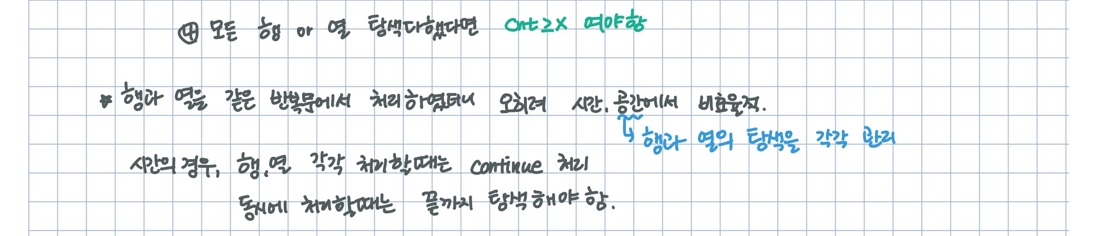 ④ 모든 행 or 열 탐색다했다면 cnt≥X 여야함
* 행과 열을 같은 반복문에서 처리하였더니 오히려 시간, 공간에서 비효율적.
↳ 행과 열의 탐색을 각각 관리
시간의 경우, 행, 열 각각 처리할때는 continue 처리
동시에 처리할때는 끝까지 탐색해야 함.